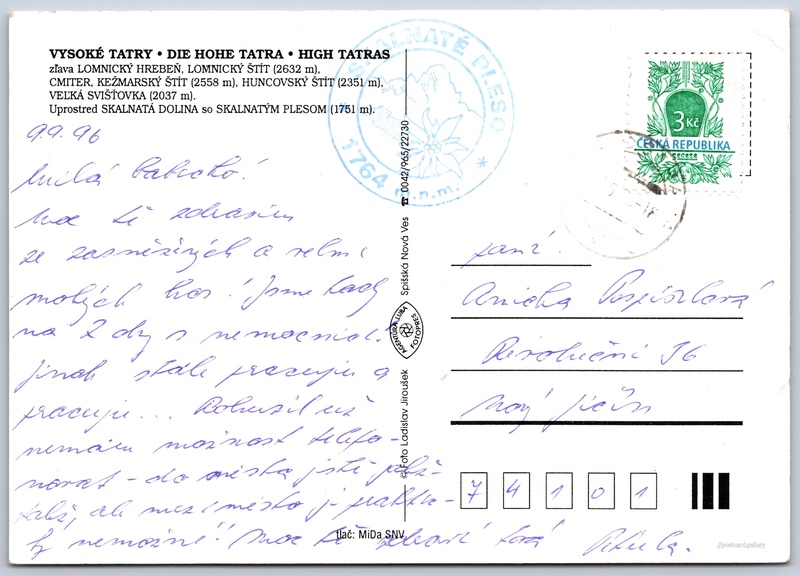 VYSOKÉ TATRY • DIE HOHE TATRA • HIGH TATRAS
zľava LOMNICKÝ HREBEŇ, LOMNICKÝ ŠTÍT (2632 m),
CMITER, KEŽMARSKÝ ŠTÍT (2558 m), HUNCOVSKÝ ŠTÍT (2351 m),
VEĽKÁ SVIŠŤOVKA (2037 m).
Uprostred SKALNATÁ DOLINA so SKALNATÝM PLESOM (1751 m).
SKALNATÉ PLESO
1764 m.n.m. *
3 Kč
ČESKÁ REPUBLIKA
9.9.96
Milá babičko!
Moc tě zdravím
ze zasněžených a velmi
mokrých hor! Jsme tady
na 2 dny s nemocnicí.
Jinak stále pracuju a
pracuju... Bohužel už
nemám možnost telefo-
novat - do města ještě
ale mezi město je praktic-
ky nemožné!! Moc tě zdraví tvá
☎ 0042/965/22730
Spišská Nová Ves
AGENTÚRA ĽUBA
FOTOPRES
© Foto Ladislav Jiroušek
tlač: MiDa SNV
paní
Anička Pospíšilová
Revoluční 36
Nový Jičín
7 4 1 0 1
postcard.gallery